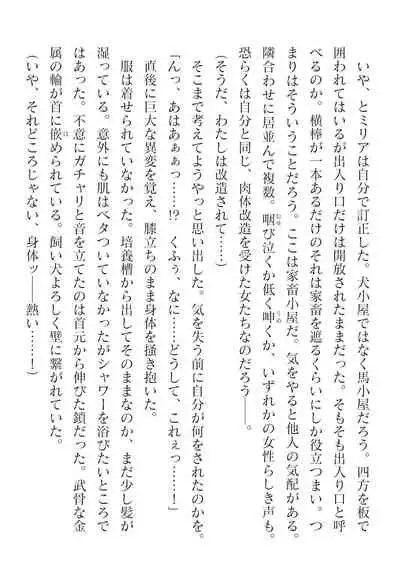 いや、とミリアは自分で訂正した。犬小屋ではなく馬小屋だろう。四方を板で
囲われてはいるが出入り口だけは開放されたままだった。そもそも出入り口と呼
べるのか。横棒が一本あるだけのそれは家畜を遮るくらいにしか役立つまい。つ
まりはそういうことだろう。ここは家畜小屋だ。気をやると他人の気配がある。
隣合わせに居並んで複数。咽び泣くか低く呻くか、いずれかの女性らしき声も。
恐らくは自分と同じ、肉体改造を受けた女たちなのだろう――。
（そうだ、わたしは改造されて……）
そこまで考えてようやっと思い出した。気を失う前に自分が何をされたのかを。
「んっ、あはあぁぁっ……!?　くふぅ、なに……どうして、これぇっ……！」
直後に巨大な異変を覚え、膝立ちのまま身体を掻き抱いた。
服は着せられていなかった。培養槽から出してそのままなのか、まだ少し髪が
湿っている。意外にも肌はベタついていなかったがシャワーを浴びたいところで
はあった。不意にガチャリと音を立てたのは首元から伸びた鎖だった。武骨な金
属の輪が首に嵌められている。飼い犬よろしく壁に繋がれていた。
（いや、それどころじゃない、身体ッ――熱い……！）